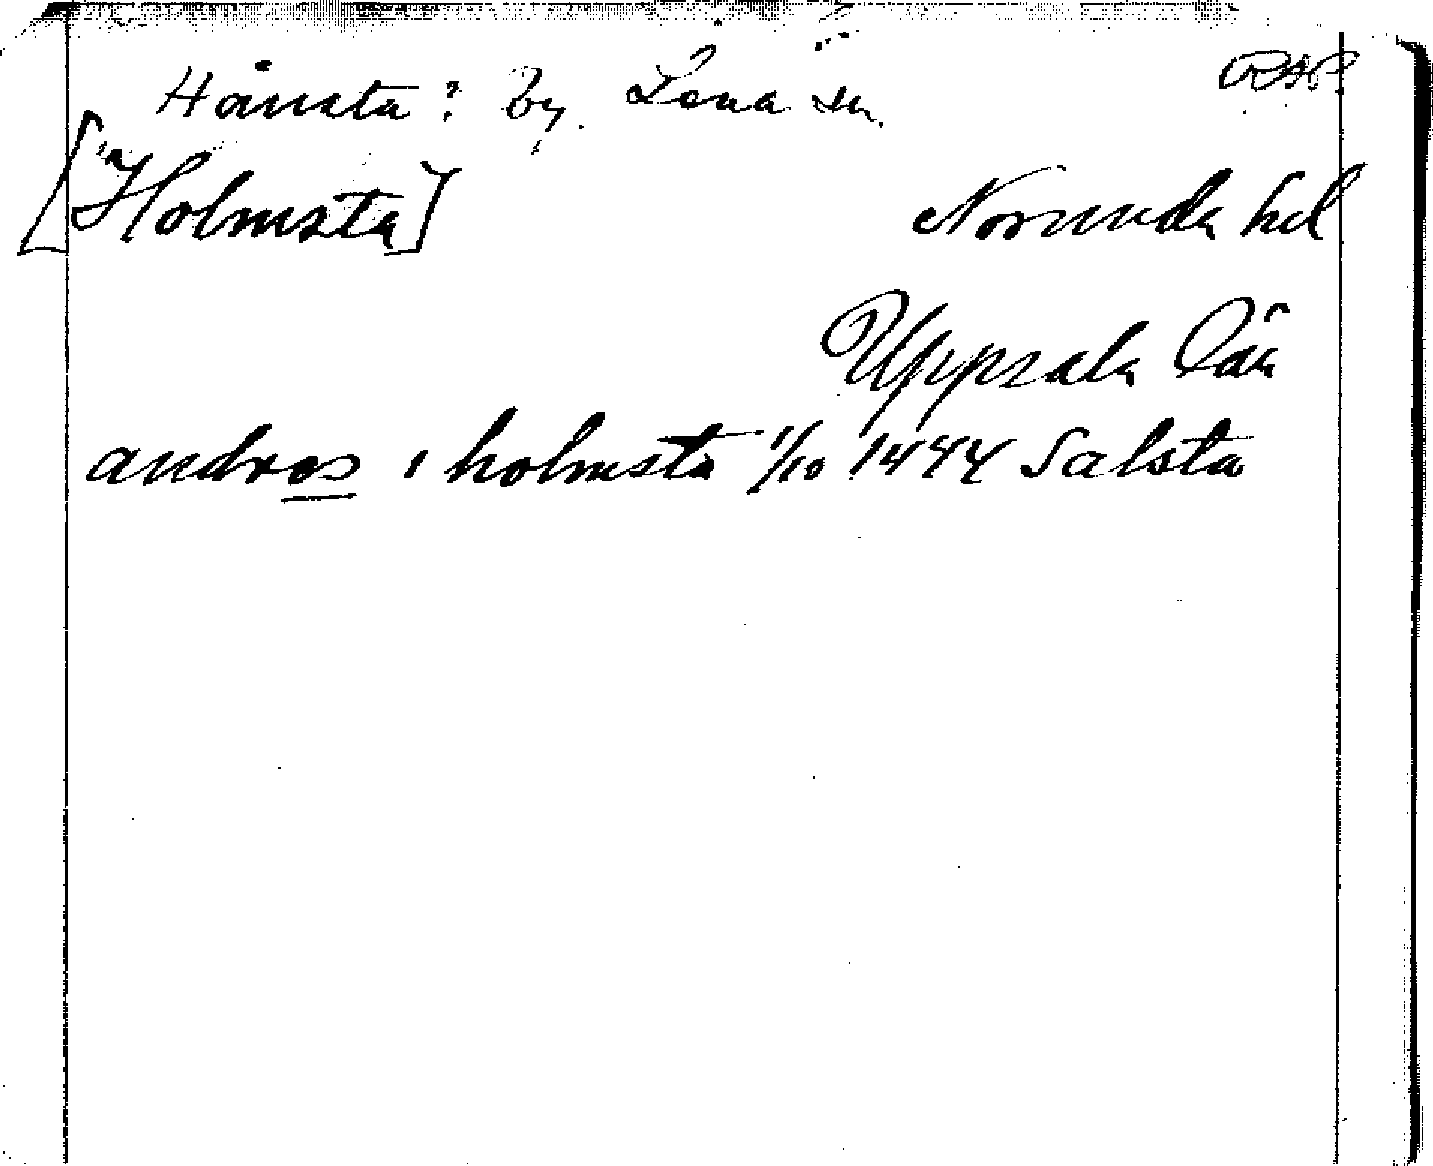 Hånsta? by. Lena sn. RAP.
[Holmsta] Norunda hd
Uppsala län
andros i holmsta 1/10 1444 Salsta